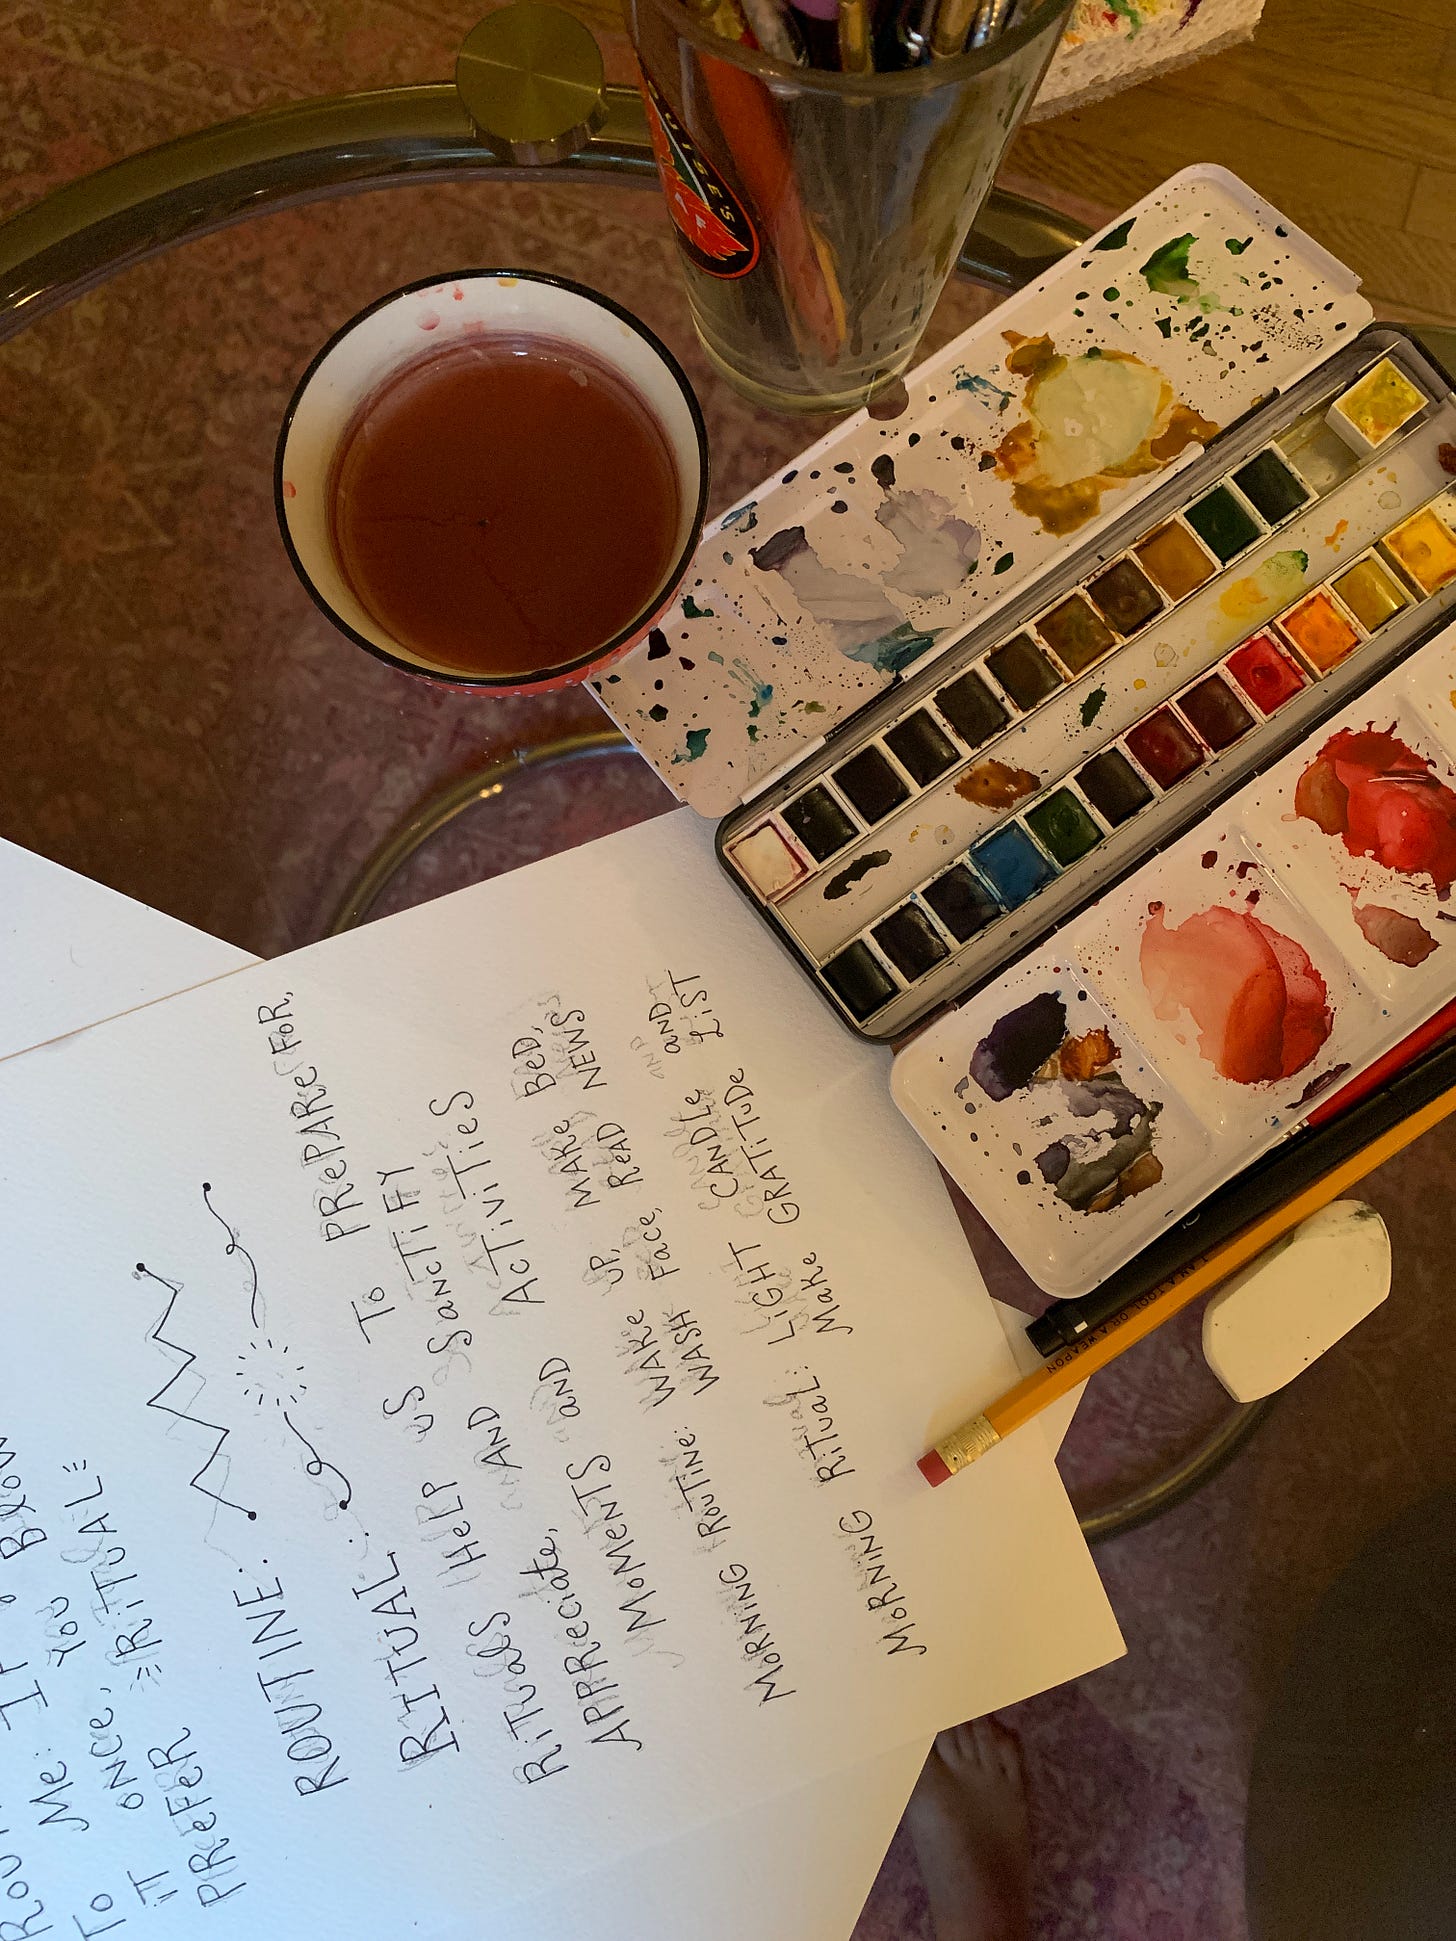 TO ME: IF
IT ONCE, YOU BLOW
PREFER RITUAL
ROUTINE:
RITUAL:
RITUALS HELP US TO PREPARE FOR,
APPRECIATE, AND SANCTIFY
MOMENTS AND ACTIVITIES
MORNING ROUTINE: WAKE UP, MAKE BED,
WASH FACE, READ NEWS
MORNING RITUAL: LIGHT CANDLE AND
MAKE GRATITUDE LIST
I AM A TOOL OR A WEAPON